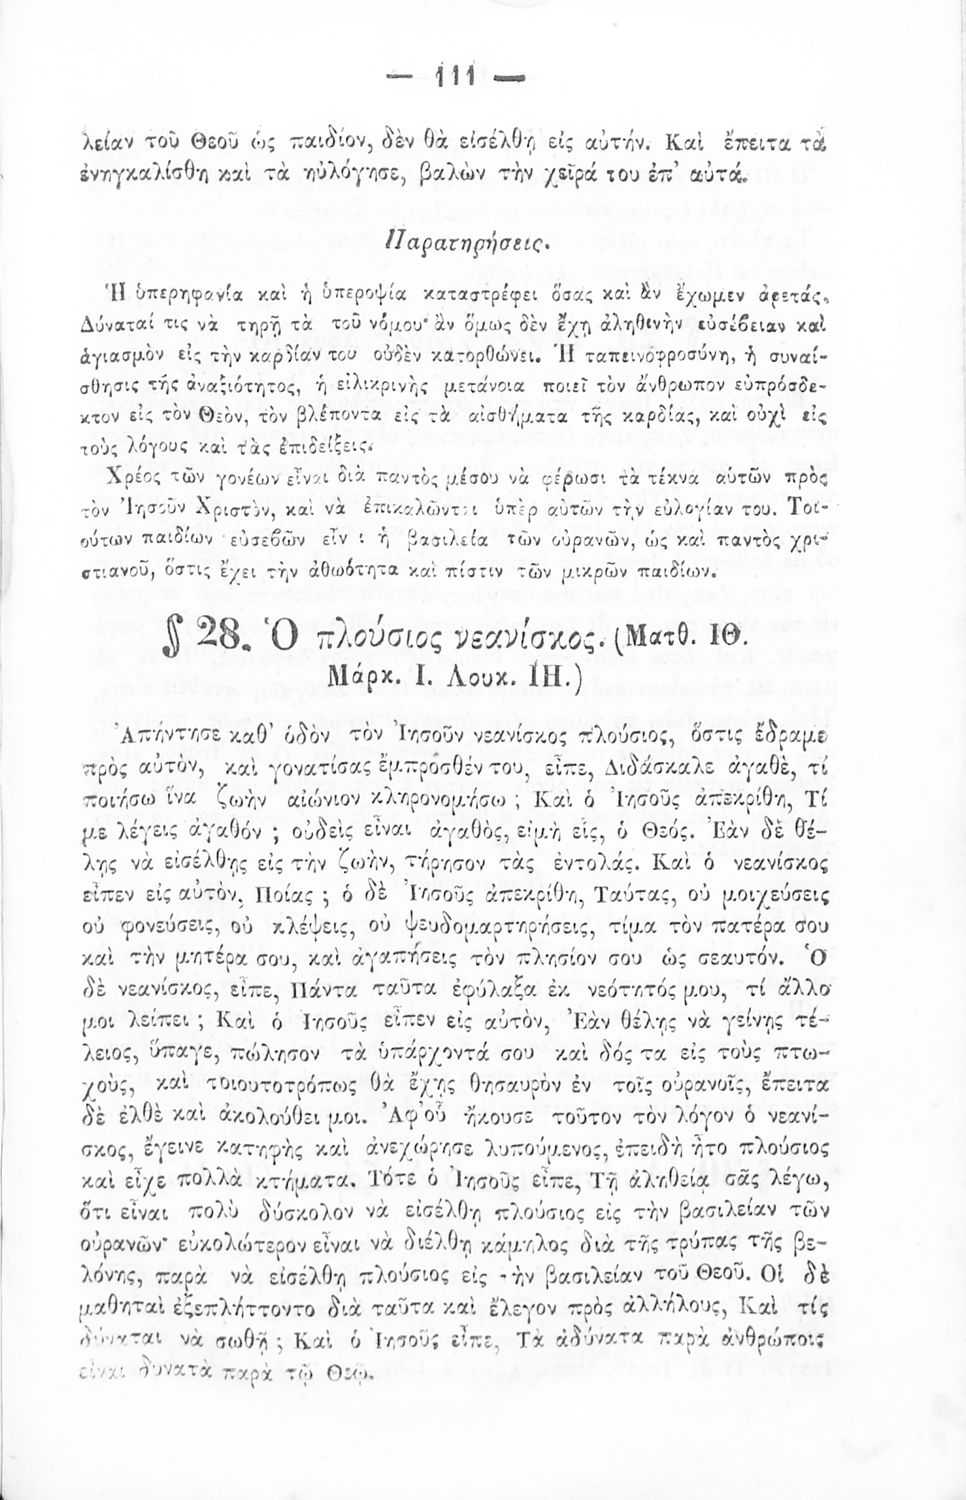 — 111 —
λείαν τοῦ Θεοῦ ὡς παιδίον, δὲν θὰ εἰσέλθῃ εἰς αὐτήν. Καὶ ἔπειτα τὰ
ἐνηγκαλίσθη καὶ τὰ ηὐλόγησε, βαλὼν τὴν χεῖρά του ἐπ' αὐτά.
Παρατηρήσεις.
Ἡ ὑπερηφανία καὶ ἡ ὑπεροψία καταστρέφει ὅσας καὶ ἂν ἔχωμεν ἀρετάς.
Δύναταί τις νὰ τηρῇ τὰ τοῦ νόμου· ἂν ὅμως δὲν ἔχῃ ἀληθινὴν εὐσέβειαν καὶ
ἁγιασμὸν εἰς τὴν καρδίαν του οὐδὲν κατορθώνει. Ἡ ταπεινοφροσύνη, ἡ συναί-
σθησις τῆς ἀναξιότητος, ἡ εἰλικρινὴς μετάνοια ποιεῖ τὸν ἄνθρωπον εὐπρόσδε-
κτον εἰς τὸν Θεὸν, τὸν βλέποντα εἰς τὰ αἰσθήματα τῆς καρδίας, καὶ οὐχὶ εἰς
τοὺς λόγους καὶ τὰς ἐπιδείξεις.
Χρέος τῶν γονέων εἶναι διὰ παντὸς μέσου νὰ φέρωσι τὰ τέκνα αὐτῶν πρὸς
τὸν Ἰησοῦν Χριστὸν, καὶ νὰ ἐπικαλῶνται ὑπὲρ αὐτῶν τὴν εὐλογίαν του. Τοι-
ούτων παιδίων εὐσεβῶν εἶναι ἡ βασιλεία τῶν οὐρανῶν, ὡς καὶ παντὸς χρι-
στιανοῦ, ὅστις ἔχει τὴν ἀθωότητα καὶ πίστιν τῶν μικρῶν παιδίων.
§ 28. Ὁ πλούσιος νεανίσκος. (Ματθ. ΙΘ.
Μάρκ. Ι. Λουκ. ΙΗ.)
Ἀπήντησε καθ' ὁδὸν τὸν Ἰησοῦν νεανίσκος πλούσιος, ὅστις ἔδραμε
πρὸς αὐτὸν, καὶ γονατίσας ἔμπροσθέν του, εἶπε, Διδάσκαλε ἀγαθὲ, τί
ποιήσω ἵνα ζωὴν αἰώνιον κληρονομήσω ; Καὶ ὁ Ἰησοῦς ἀπεκρίθη, Τί
με λέγεις ἀγαθόν ; οὐδεὶς εἶναι ἀγαθὸς, εἰμὴ εἷς, ὁ Θεός. Ἐὰν δὲ θέ-
λῃς νὰ εἰσέλθῃς εἰς τὴν ζωὴν, τήρησον τὰς ἐντολάς. Καὶ ὁ νεανίσκος
εἶπεν εἰς αὐτὸν, Ποίας ; ὁ δὲ Ἰησοῦς ἀπεκρίθη, Ταύτας, οὐ μοιχεύσεις
οὐ φονεύσεις, οὐ κλέψεις, οὐ ψευδομαρτηρήσεις, τίμα τὸν πατέρα σου
καὶ τὴν μητέρα σου, καὶ ἀγαπήσεις τὸν πλησίον σου ὡς σεαυτόν. Ὁ
δὲ νεανίσκος, εἶπε, Πάντα ταῦτα ἐφύλαξα ἐκ νεότητός μου, τί ἄλλο
μοι λείπει ; Καὶ ὁ Ἰησοῦς εἶπεν εἰς αὐτὸν, Ἐὰν θέλῃς νὰ γείνῃς τέ-
λειος, ὕπαγε, πώλησον τὰ ὑπάρχοντά σου καὶ δός τα εἰς τοὺς πτω-
χοὺς, καὶ τοιουτοτρόπως θὰ ἔχῃς θησαυρὸν ἐν τοῖς οὐρανοῖς, ἔπειτα
δὲ ἐλθὲ καὶ ἀκολούθει μοι. Ἀφ' οὗ ἤκουσε τοῦτον τὸν λόγον ὁ νεανί-
σκος, ἔγεινε κατηφὴς καὶ ἀνεχώρησε λυπούμενος, ἐπειδὴ ἦτο πλούσιος
καὶ εἶχε πολλὰ κτήματα. Τότε ὁ Ἰησοῦς εἶπε, Τῇ ἀληθείᾳ σᾶς λέγω,
ὅτι εἶναι πολὺ δύσκολον νὰ εἰσέλθῃ πλούσιος εἰς τὴν βασιλείαν τῶν
οὐρανῶν· εὐκολώτερον εἶναι νὰ διέλθῃ κάμηλος διὰ τῆς τρύπας τῆς βε-
λόνης, παρὰ νὰ εἰσέλθῃ πλούσιος εἰς τὴν βασιλείαν τοῦ Θεοῦ. Οἱ δὲ
μαθηταὶ ἐξεπλήττοντο διὰ ταῦτα καὶ ἔλεγον πρὸς ἀλλήλους, Καὶ τίς
δύναται νὰ σωθῇ ; Καὶ ὁ Ἰησοῦς εἶπε, Τὰ ἀδύνατα παρὰ ἀνθρώποις
εἶναι δυνατὰ παρὰ τῷ Θεῷ.